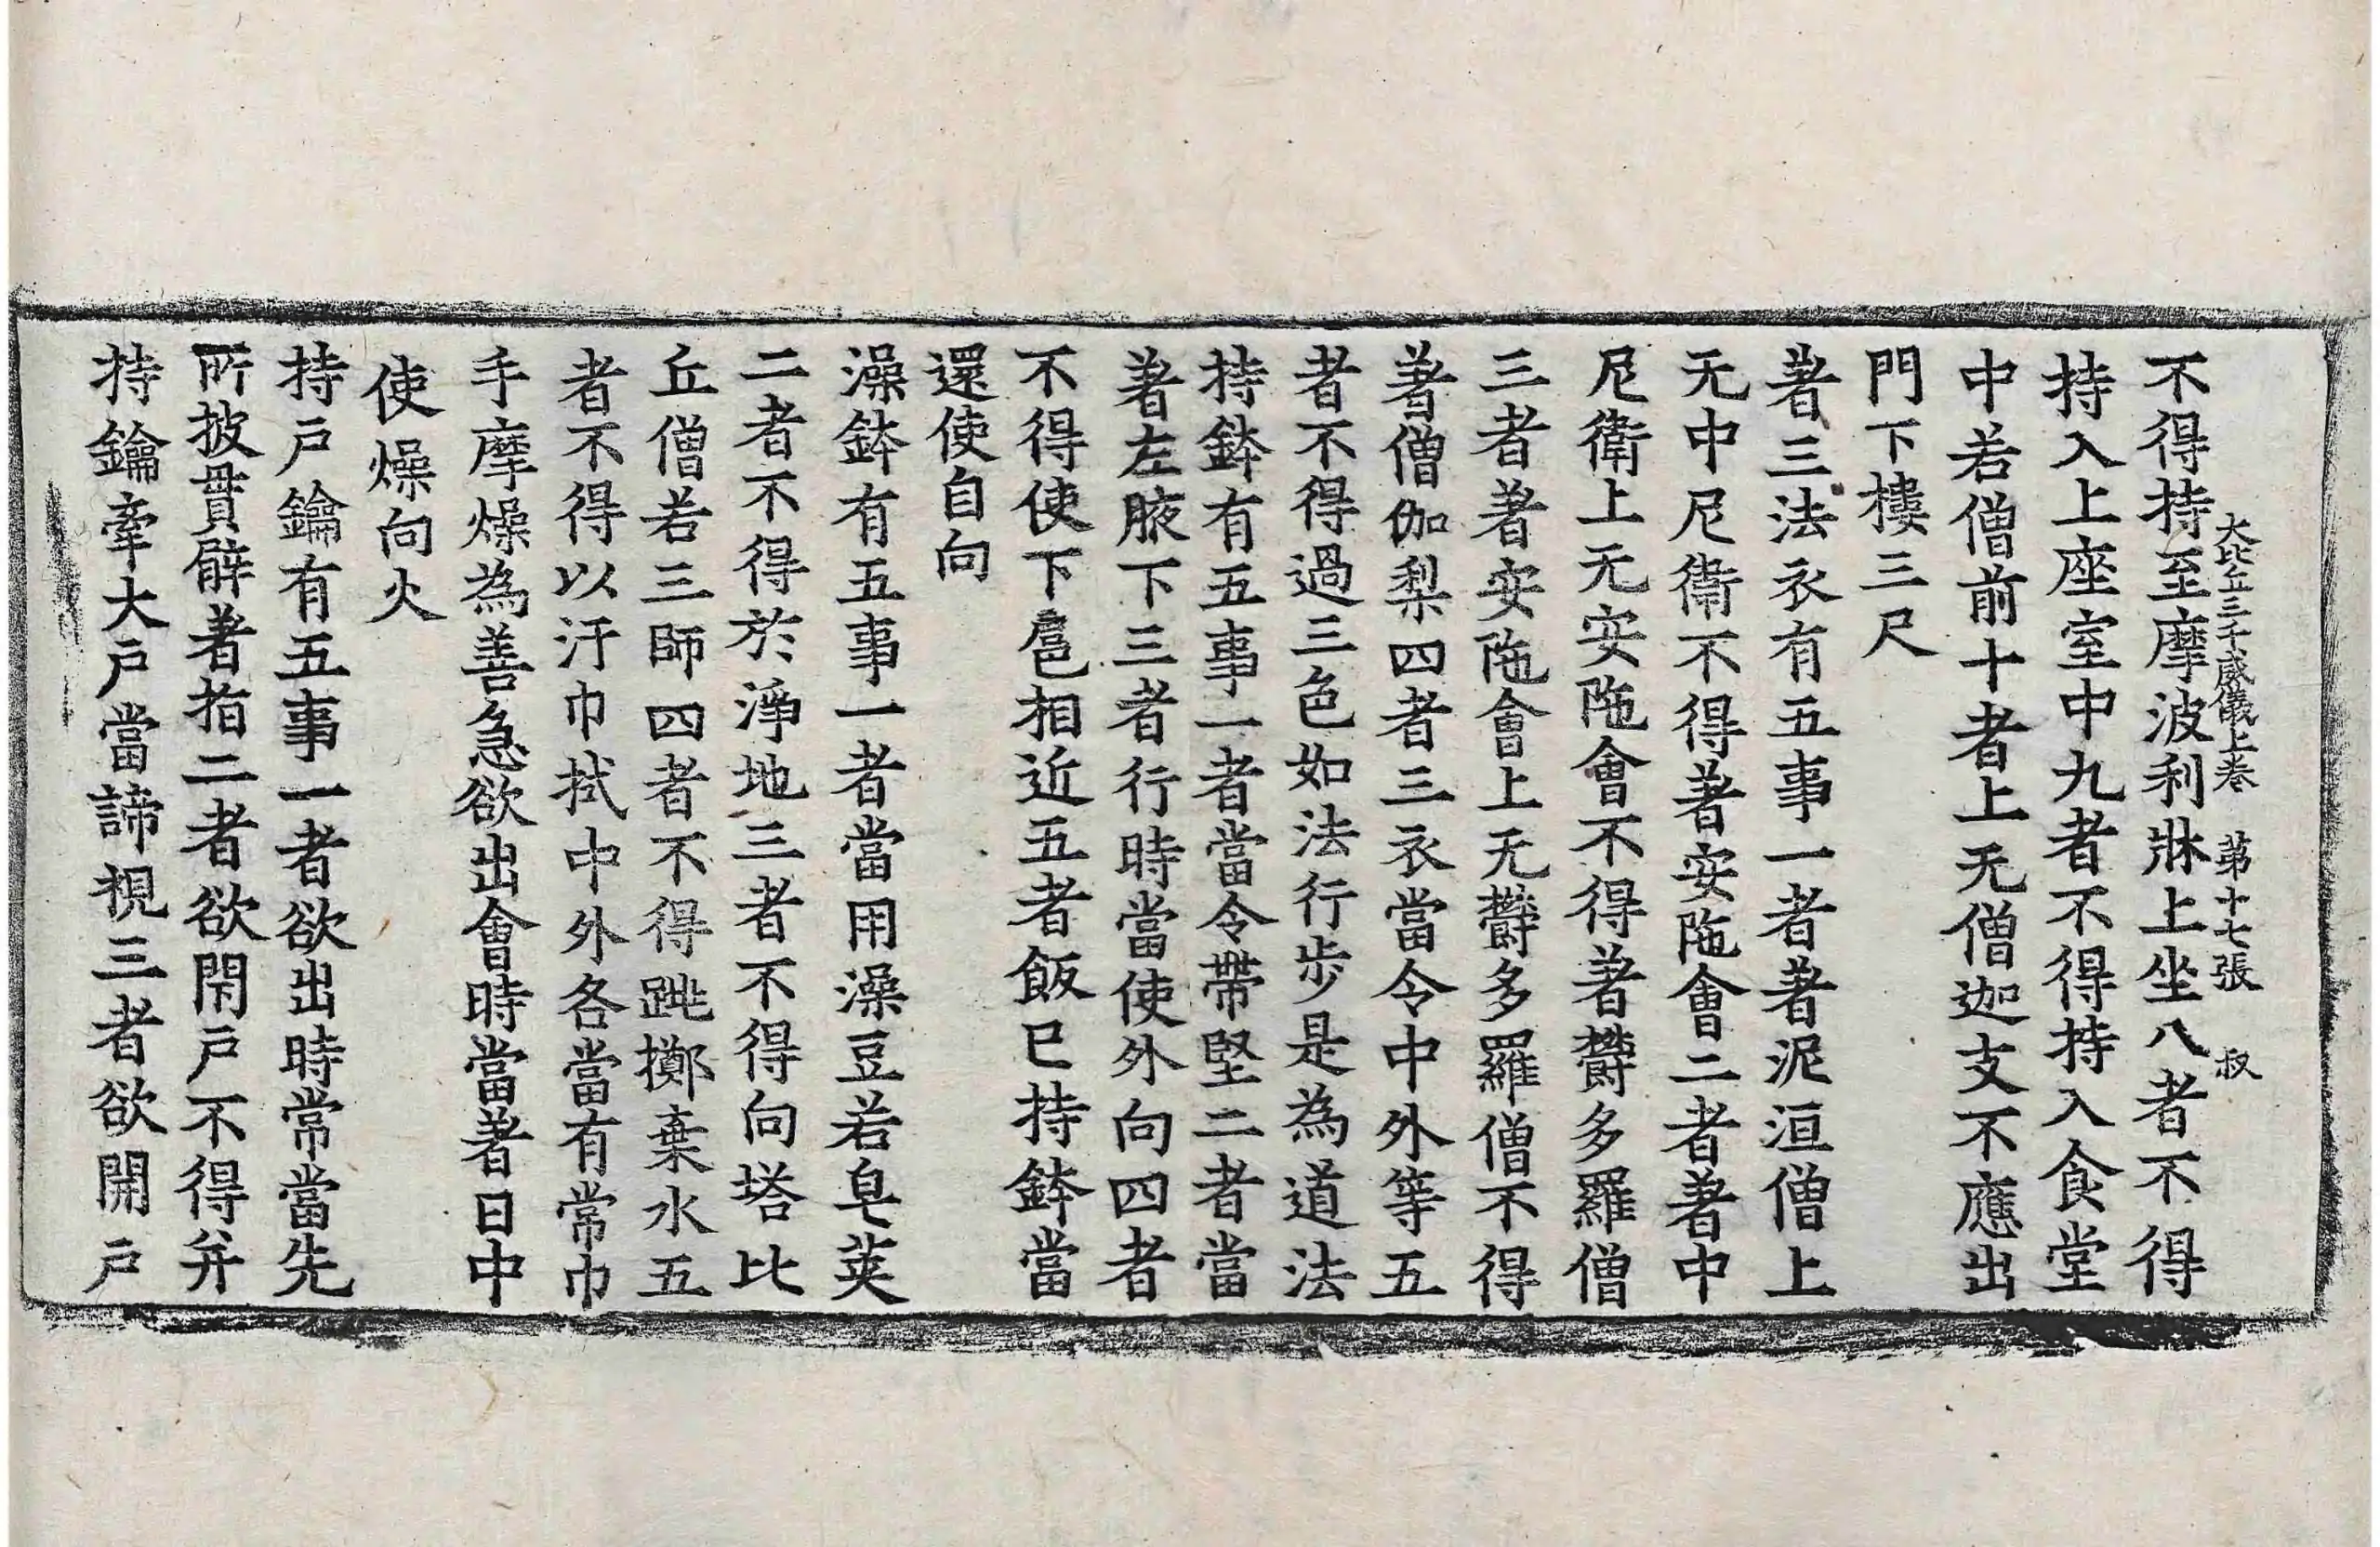 大比丘三千威儀上卷 第十七張 叔
不得持至摩波利牀上坐八者不得
持入上座室中九者不得持入食堂
中若僧前十者上无僧迦支不應出
門下樓三尺
著三法衣有五事一者著泥洹僧上
无中尼衛不得著安陁會二者著中
尼衛上无安陁會不得著欝多羅僧
三者著安陁會上无欝多羅僧不得
著僧伽梨四者三衣當令中外等五
者不得過三色如法行步是為道法
持鉢有五事一者當令帶堅二者當
著左腋下三者行時當使外向四者
不得使下卮相近五者飯已持鉢當
還使自向
澡鉢有五事一者當用澡豆若皁莢
二者不得於淨地三者不得向塔比
丘僧若三師四者不得跳擲棄水五
者不得以汙巾拭中外各當有常巾
手摩燥為善急欲出會時當著日中
使燥向火
持戶鑰有五事一者欲出時常當先
所披貫臂著指二者欲閇戶不得并
持鑰牽大戶當諦視三者欲開戶